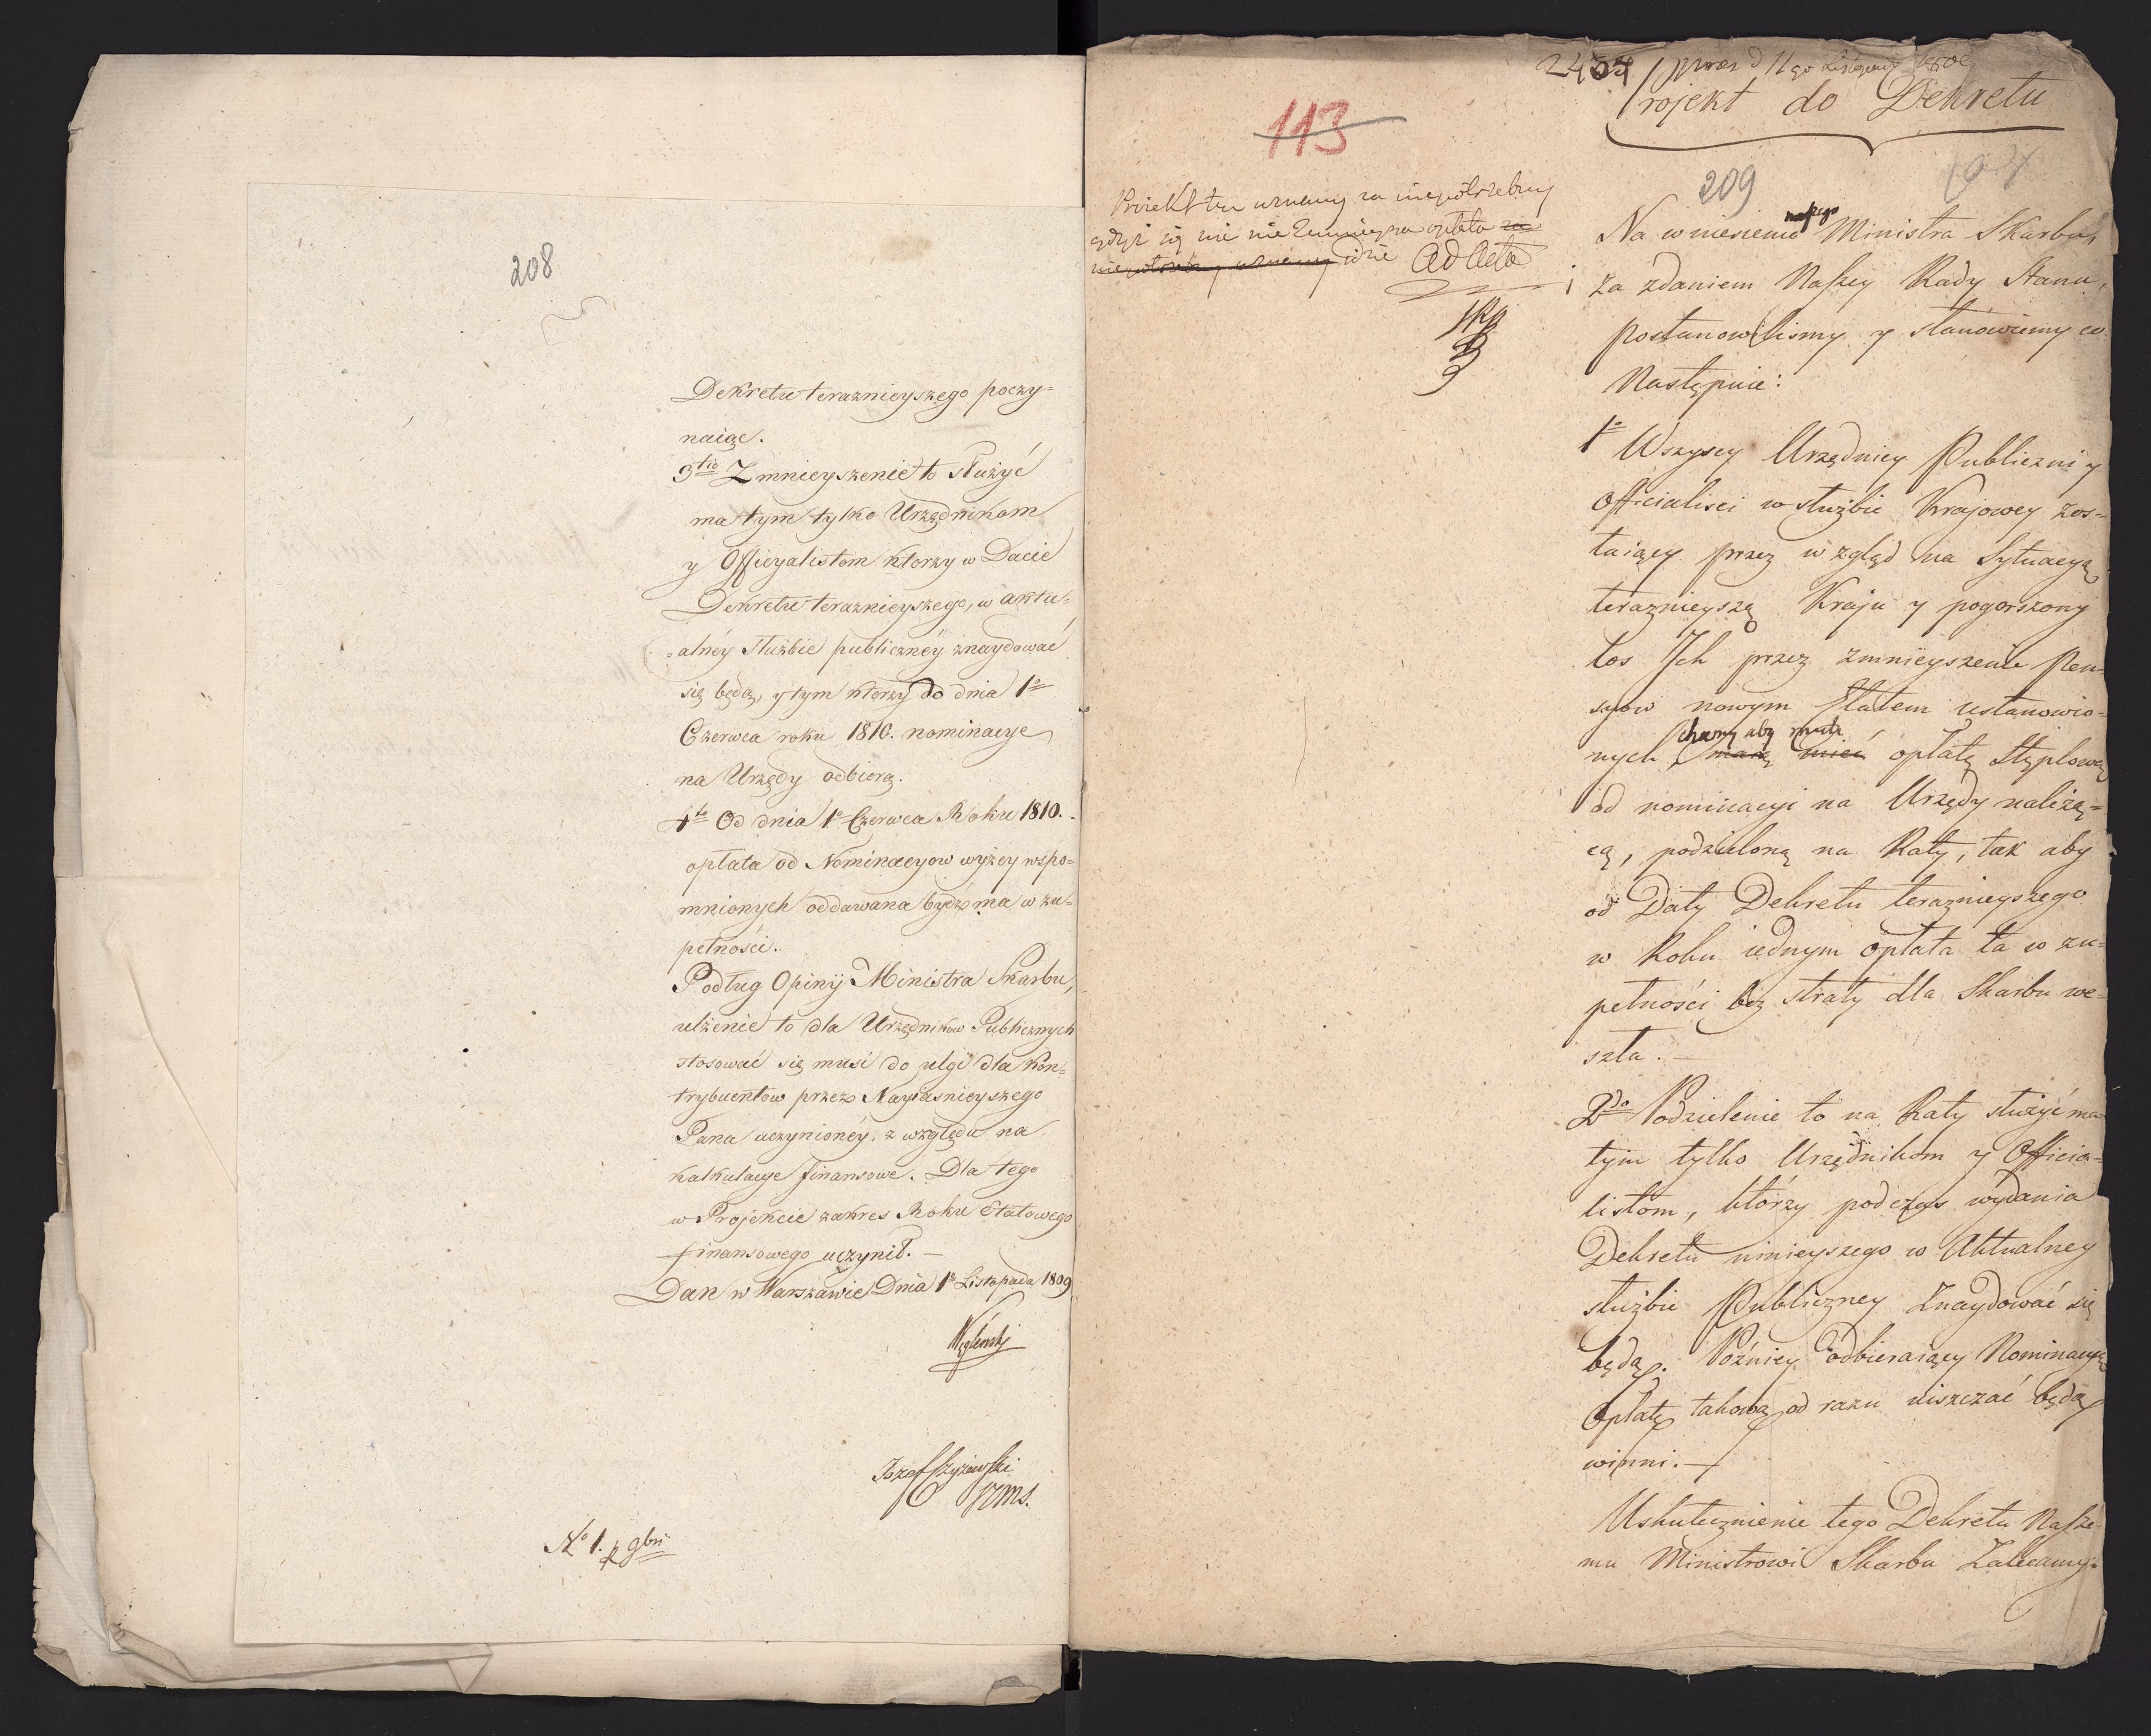 208
Dekretu teraznieyszego poczy=
naiąc.
3tio Zmnieyszenie to służyć
ma tym tylko Urzędnikom
y Officyalistom ktorzy w Dacie
Dekretu teraznieyszego, w aktu=
=alnéy służbie publicznéy znaydować
się będą, y tym ktorzy do dnia 1o
Czerwca roku 1810. nominacye
na Urzędy odbiorą.
4to Od dnia 1o Czerwca Roku 1810.
opłata od Nominacyow wyżey wspo=
mnionych oddawana bydź ma w zu=
pełności.
Podług Opinij Ministra Skarbu,
ulżenie to dla Urzędników Publicznych
stosować się musi do ulgi dla Kon=
trybuentow przez Nayiasnieyszego
Pana uczynionéy, z względu na
kalkulacye finansowe. Dla tego
w Projekcie zakres Roku Etatowego
finansowego uczynił. —
Dan w Warszawie Dnia 1o Listopada 1809
Węgleński
Jozef Szyżewski
No 1. 9bris
2434 praes d 11go Listopada 1809
Projekt do Dekretu
113
209
Projekt ten uznany za niepotrzebny
gdyż się nie zmnieysza opłata za
niepotrzebny uznany idzie Ad Acta
Na wniesienie naszego Ministra Skarbu,
i za zdaniem Naszey Rady Stanu,
postanowilismy y stanowiemy co
Następuie:
1o Wszyscy Urzędnicy Publiczni y
Officialisci w służbie Krajowey zos=
taiący przez wzgląd na Sytuacyą
teraznieyszą Kraju y pogorszony
los Jch przez zmnieyszenie Pen=
syow nowym Etatem ustanowio=
nych chcemy aby mieli maią mieć opłatę Stęplową
od nominacyi na Urzędy należą=
cą, podzieloną na Raty, tak aby
od Daty Dekretu teraznieyszego
w Roku iednym opłata ta w zu=
pełności bez straty dla Skarbu we=
szła. —
2do Podzielenie to na Raty służyć ma
tym tylko Urzędnikom y Officia=
listom, którzy podczas wydania
Dekretu ninieyszego w Aktualney
służbie Publiczney Znaydować się
będą. Pózniey odbieraiący Nominacyą
Opłatę takową od razu uiszczać będą
winni. —
Uskutecznienie tego Dekretu Nasze=
mu Ministrowi Skarbu Zalecamy.